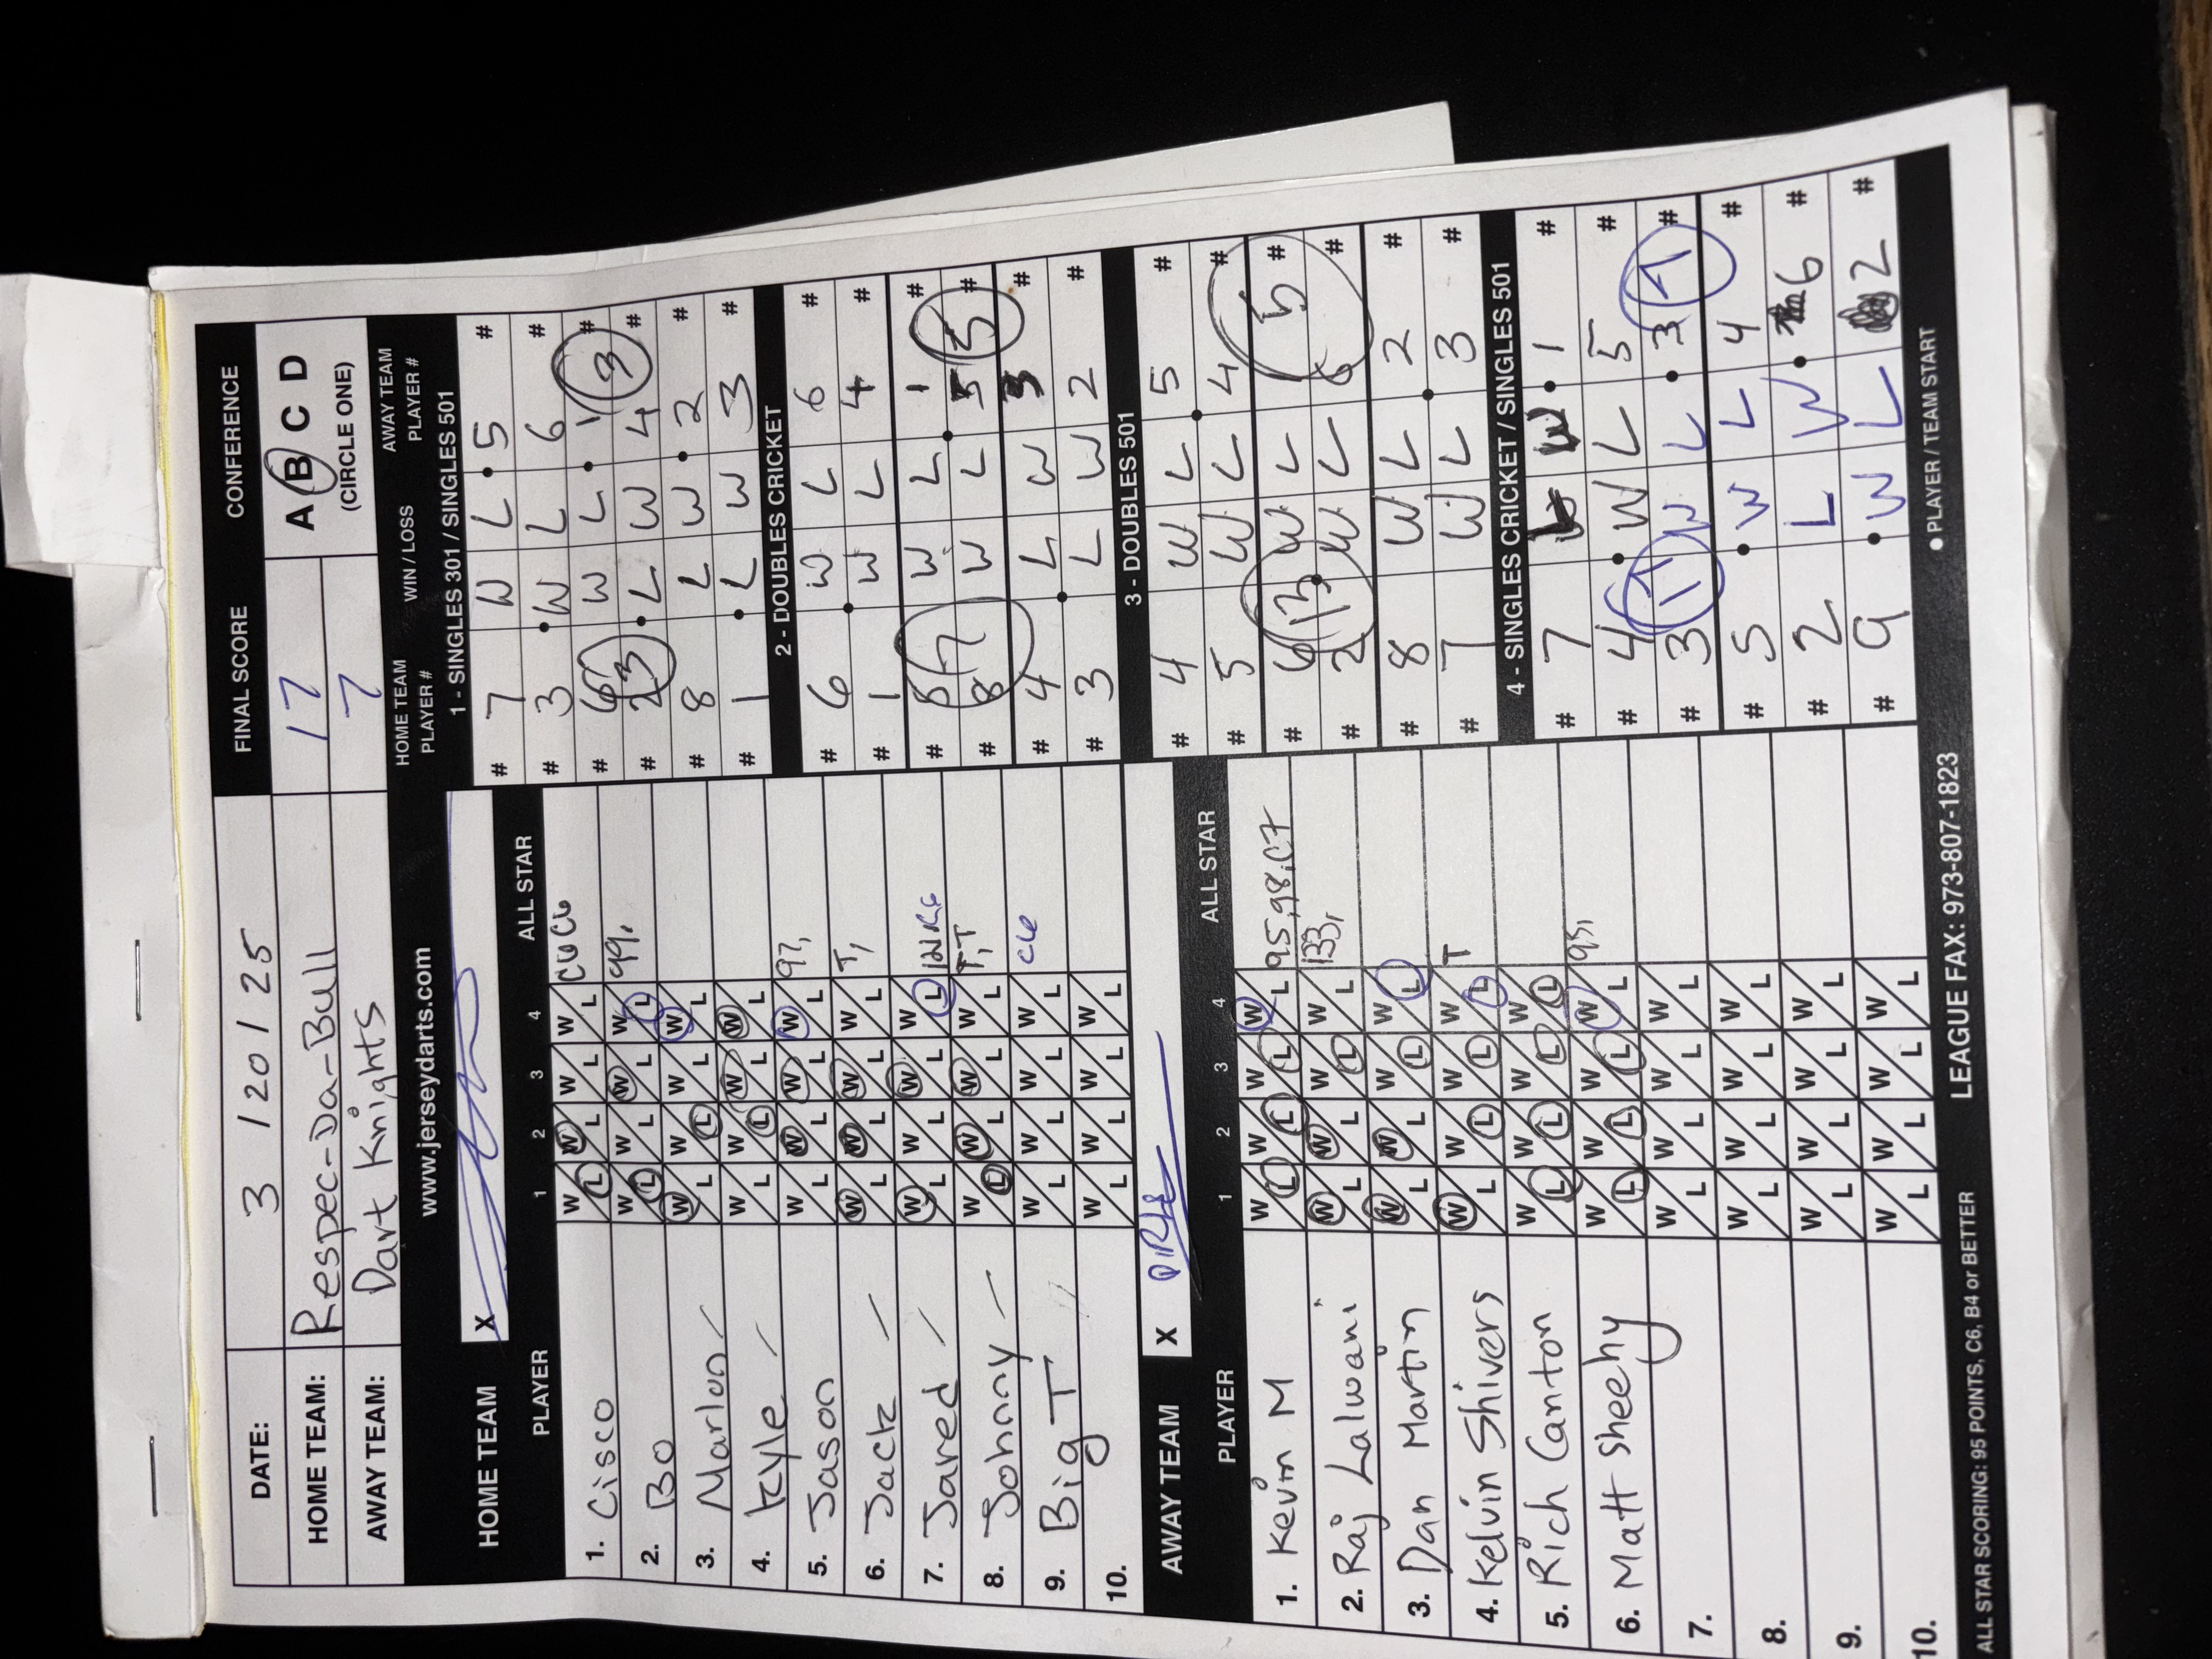 DATE: 3 / 20 / 25 FINAL SCORE CONFERENCE
HOME TEAM: Respec-Da-Bull 17 A B C D
AWAY TEAM: Dart Knights 7 (CIRCLE ONE)
www.jerseydarts.com
HOME TEAM X
PLAYER 1 2 3 4 ALL STAR
1. Cisco W L W L W L W L
2. Bo W L W L W L W L 99,
3. Marlon W L W L W L W L
4. Kyle W L W L W L W L
5. Jason W L W L W L W L 97,
6. Jack W L W L W L W L T,
7. Jared W L W L W L W L
8. Johnny W L W L W L W L T,T
9. Big T W L W L W L W L C6
10. W L W L W L W L
AWAY TEAM X
PLAYER 1 2 3 4 ALL STAR
1. Kevin M W L W L W L W L 95,98,C7
2. Raj Lalwani W L W L W L W L 133,
3. Dan Martin W L W L W L W L
4. Kelvin Shivers W L W L W L W L T
5. Rich Canton W L W L W L W L
6. Matt Sheehy W L W L W L W L 95,
7. W L W L W L W L
8. W L W L W L W L
9. W L W L W L W L
10. W L W L W L W L
ALL STAR SCORING: 95 POINTS, C6, B4 or BETTER LEAGUE FAX: 973-807-1823
HOME TEAM PLAYER # WIN / LOSS AWAY TEAM PLAYER #
1 - SINGLES 301 / SINGLES 501
# 7 W L 5 #
# 3 W L 6 #
# 6 W L 1 #
# 2 3 L W 4 3 #
# 8 L W 2 #
# 1 L W 3 #
2 - DOUBLES CRICKET
# 6 W L 6 #
# 1 W L 4 #
# 5 7 W L 1 #
# 8 W L 5 5 #
# 4 L W 3 #
# 3 L W 2 #
3 - DOUBLES 501
# 4 W L 5 #
# 5 W L 4 #
# 6 13 W L 1 5 #
# 2 W L 6 #
# 8 W L 2 #
# 7 W L 3 #
4 - SINGLES CRICKET / SINGLES 501
# 7 L W 1 #
# 4 W L 5 #
# 3 17 W L 3 7 #
# 5 W L 4 #
# 2 L W 6 #
# 9 W L 2 #
● PLAYER / TEAM START